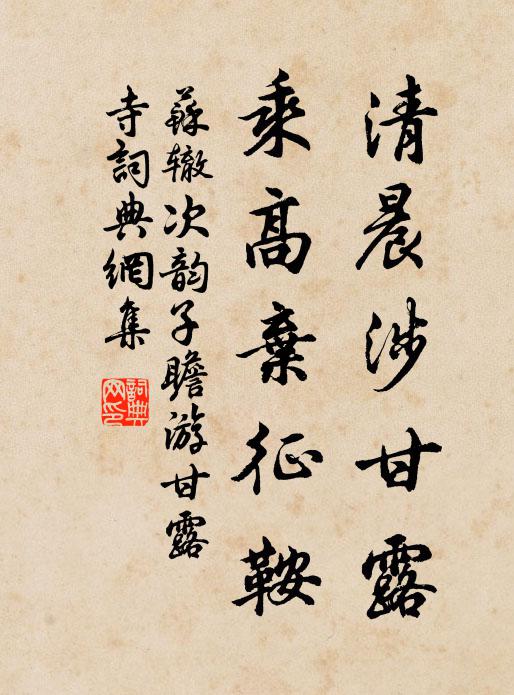 清晨涉甘露
乘高棄征鞍
蘇辙次韵子瞻游甘露
寺詞典網集
詞典网印